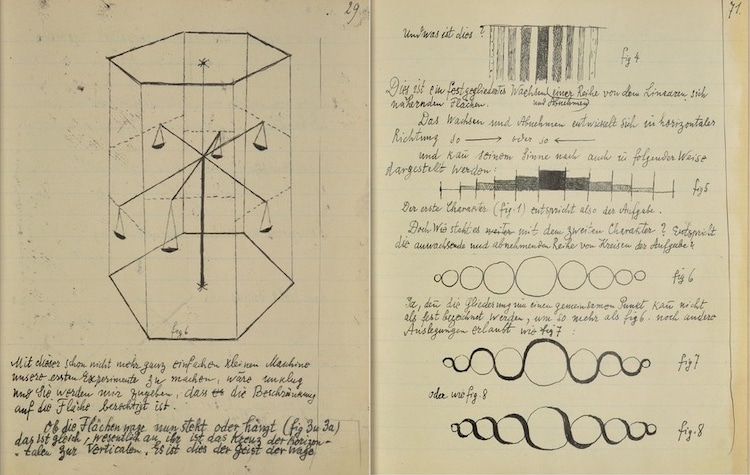 29
fig 6
Mit dieser schon nicht mehr ganz einfachen kleinen Maschine
unsere ersten Experimente zu machen, wäre unklug
und Sie werden mir zugeben, dass die Beschränkung
auf die Fläche berechtigt ist.
Ob die Flächenwage nun steht oder hängt (fig 3 u 3a)
das ist gleich, wesentlich an ihr ist das Kreuz der Horizon-
talen zur Verticalen. Es ist dies der Geist der Wage
71.
Und was ist dies?
fig 4
Dies ist ein festgegliedertes Wachsen einer Reihe von dem Linearen sich
und Abnehmen
nähernden Flächen.
Das Wachsen und Abnehmen entwickelt sich in horizontaler
Richtung so ⟶ oder so ⟵
und kan seinem Sinne nach auch in folgender Weise
dargestellt werden:
fig 5
Der erste Charakter (fig. 1) entspricht also der Aufgabe.
Doch wie steht es weiter mit dem zweiten Charakter? Entspricht
die anwachsende und abnehmende Reihe von Kreisen der Aufgabe?
fig 6
Ja, den die Gliederung um einen gemeinsamen Punkt kan nicht
als fest bezeichnet werden, um so mehr als fig 6. noch andere
Auslegungen erlaubt wie fig 7:
fig 7
oder wie fig. 8
fig. 8